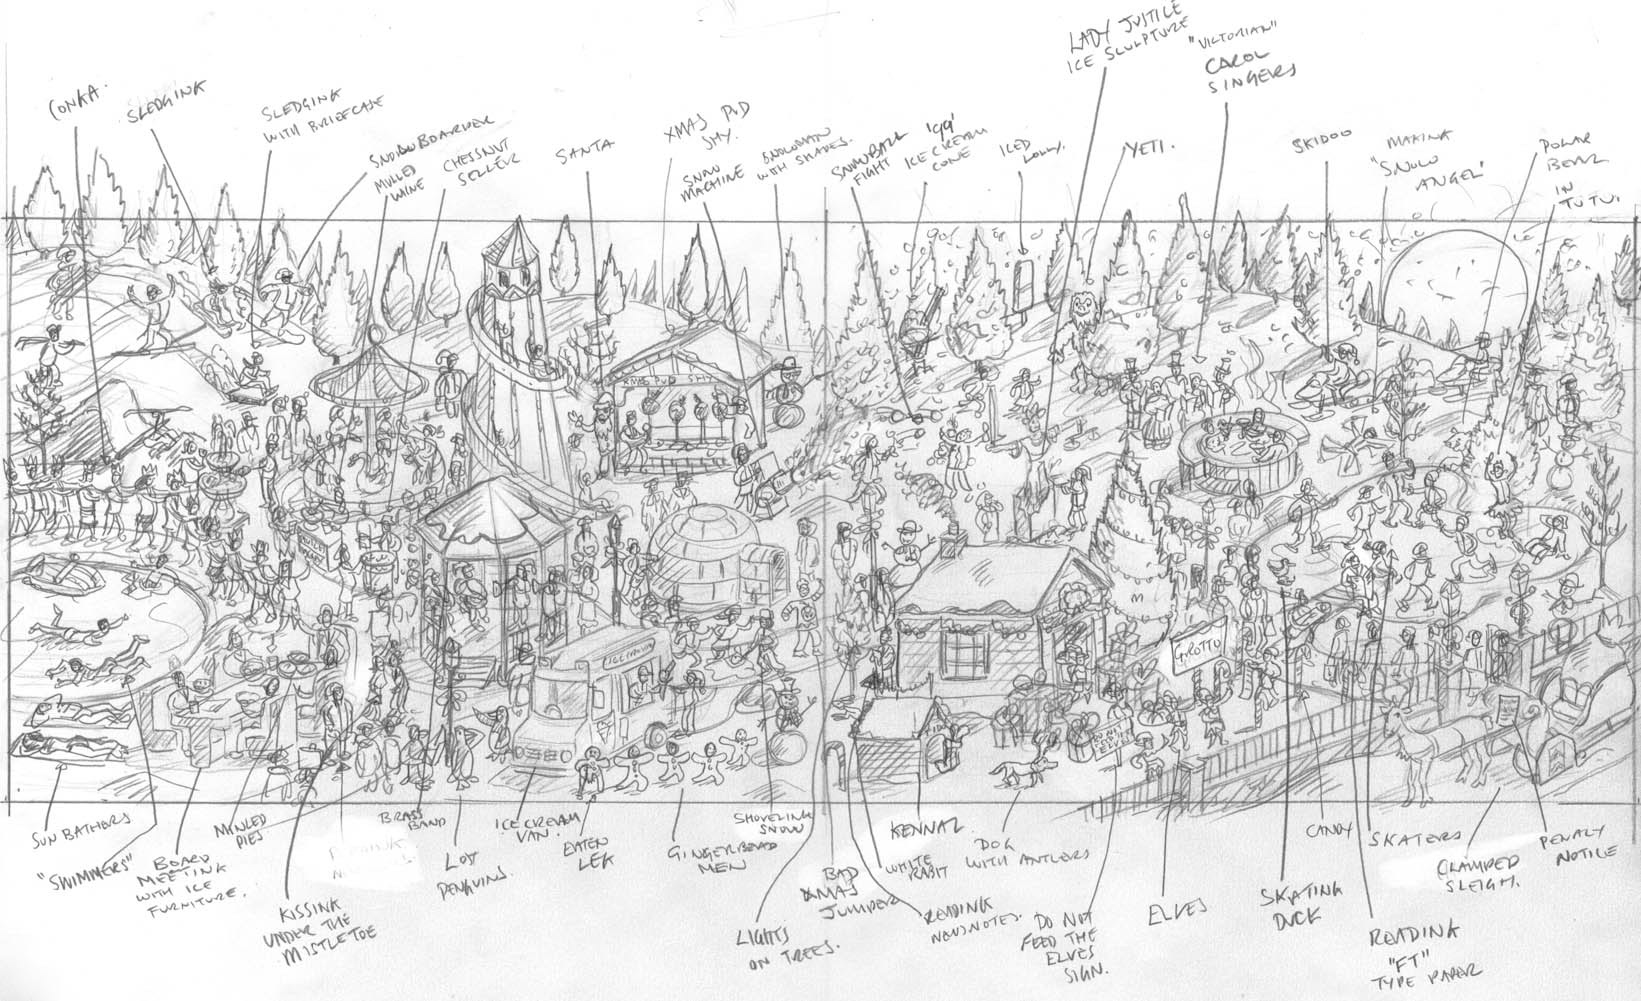 CONKA.
SLEDGINK
SLEDGINK
WITH BRIEFCASE
SNOWBOARDER
MULLED
WINE
CHESSNUT
SELLER
SANTA
XMAS PUD
SHY.
SNOW
MACHINE
SNOWMAN
WITH SHADES.
SNOWBALL
FIGHT
'99'
ICE CREAM
CONE
ICED
LOLLY.
LADY JUSTICE
ICE SCULPTURE
YETI.
"VICTORIAN"
CAROL
SINGERS
SKIDOO
MAKINK
"SNOW
ANGEL"
POLAR
BEAR
IN
TUTU.
XMAS PUD SHY
MULLED
WINE
ICE CREAM
GROTTO
DO NOT
FEED
ELVES
SUN BATHERS
"SWIMMERS"
BOARD
MEETING
WITH ICE
FURNITURE.
MINCED
PIES
KISSINK
UNDER THE
MISTLETOE
BRASS
BAND
LOST
PENGUINS.
ICE CREAM
VAN.
EATEN
LEG
GINGERBREAD
MEN
SHOVELINK
SNOW
LIGHTS
ON TREES.
BAD
XMAS
JUMPER
KENNAL
WHITE
RABIT
READINK
NEWSNOTES.
DOG
WITH ANTLERS
DO NOT
FEED THE
ELVES
SIGN.
ELVES
SKATING
DUCK
CANDY
SKATERS
READINK
"FT"
TYPE PAPER
CLAMPED
SLEIGH.
PENALTY
NOTICE